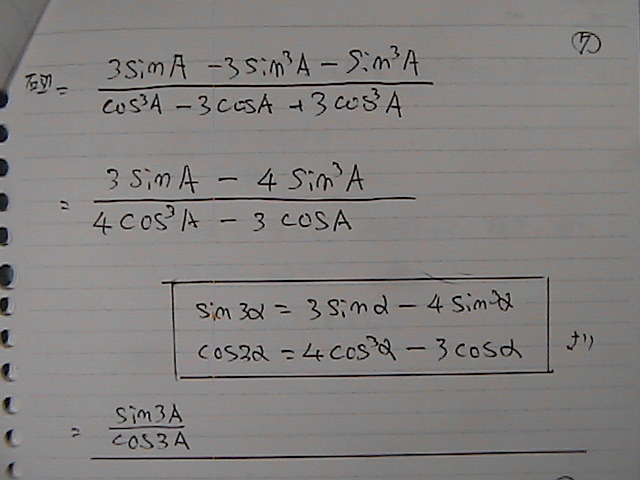 ⑦
右辺 = (3 sin A - 3 sin³A - sin³A) / (cos³A - 3 cos A + 3 cos³A)
= (3 sin A - 4 sin³A) / (4 cos³A - 3 cos A)
sin 3α = 3 sin α - 4 sin³α
cos 3α = 4 cos³α - 3 cos α より
= sin 3A / cos 3A